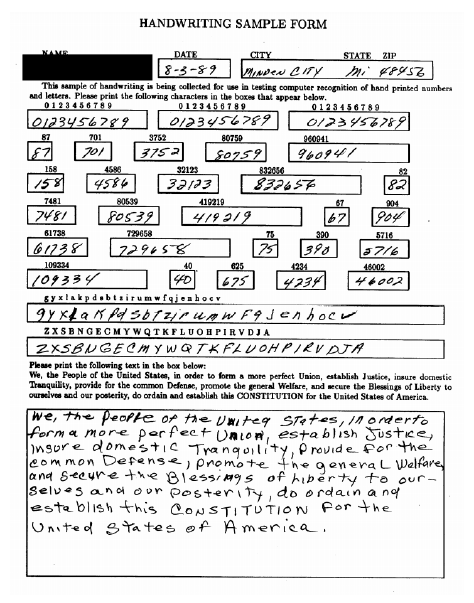 HANDWRITING SAMPLE FORM
NAME DATE CITY STATE ZIP
8-3-89 MINDEN CITY Mi 48456
This sample of handwriting is being collected for use in testing computer recognition of hand printed numbers
and letters. Please print the following characters in the boxes that appear below.
0 1 2 3 4 5 6 7 8 9 0 1 2 3 4 5 6 7 8 9 0 1 2 3 4 5 6 7 8 9
0123456789 0123456789 0123456789
87 701 3752 80759 960941
87 701 3752 80759 960941
158 4586 32123 832656 82
158 4586 32123 832656 82
7481 80539 419219 67 904
7481 80539 419219 67 904
61738 729658 75 390 5716
61738 729658 75 390 5716
109334 40 625 4234 46002
109334 40 675 4234 46002
g y x l a k p d s b t z i r u m w f q j e n h o c v
gyxlakpdsbtzirumwFqJenhocv
Z X S B N G E C M Y W Q T K F L U O H P I R V D J A
ZXSBNGECMYWQTKFLUOHPIRVDJA
Please print the following text in the box below:
We, the People of the United States, in order to form a more perfect Union, establish Justice, insure domestic
Tranquility, provide for the common Defense, promote the general Welfare, and secure the Blessings of Liberty to
ourselves and our posterity, do ordain and establish this CONSTITUTION for the United States of America.
We, the People of the United States, in order to
form a more perfect Union, establish Justice,
insure domestic Tranquility, Provide for the
common Defense, promote the general Welfare,
and secure the Blessings of Liberty to our-
selves and our Posterity, do ordain and
establish this CONSTITUTION for the
United States of America.